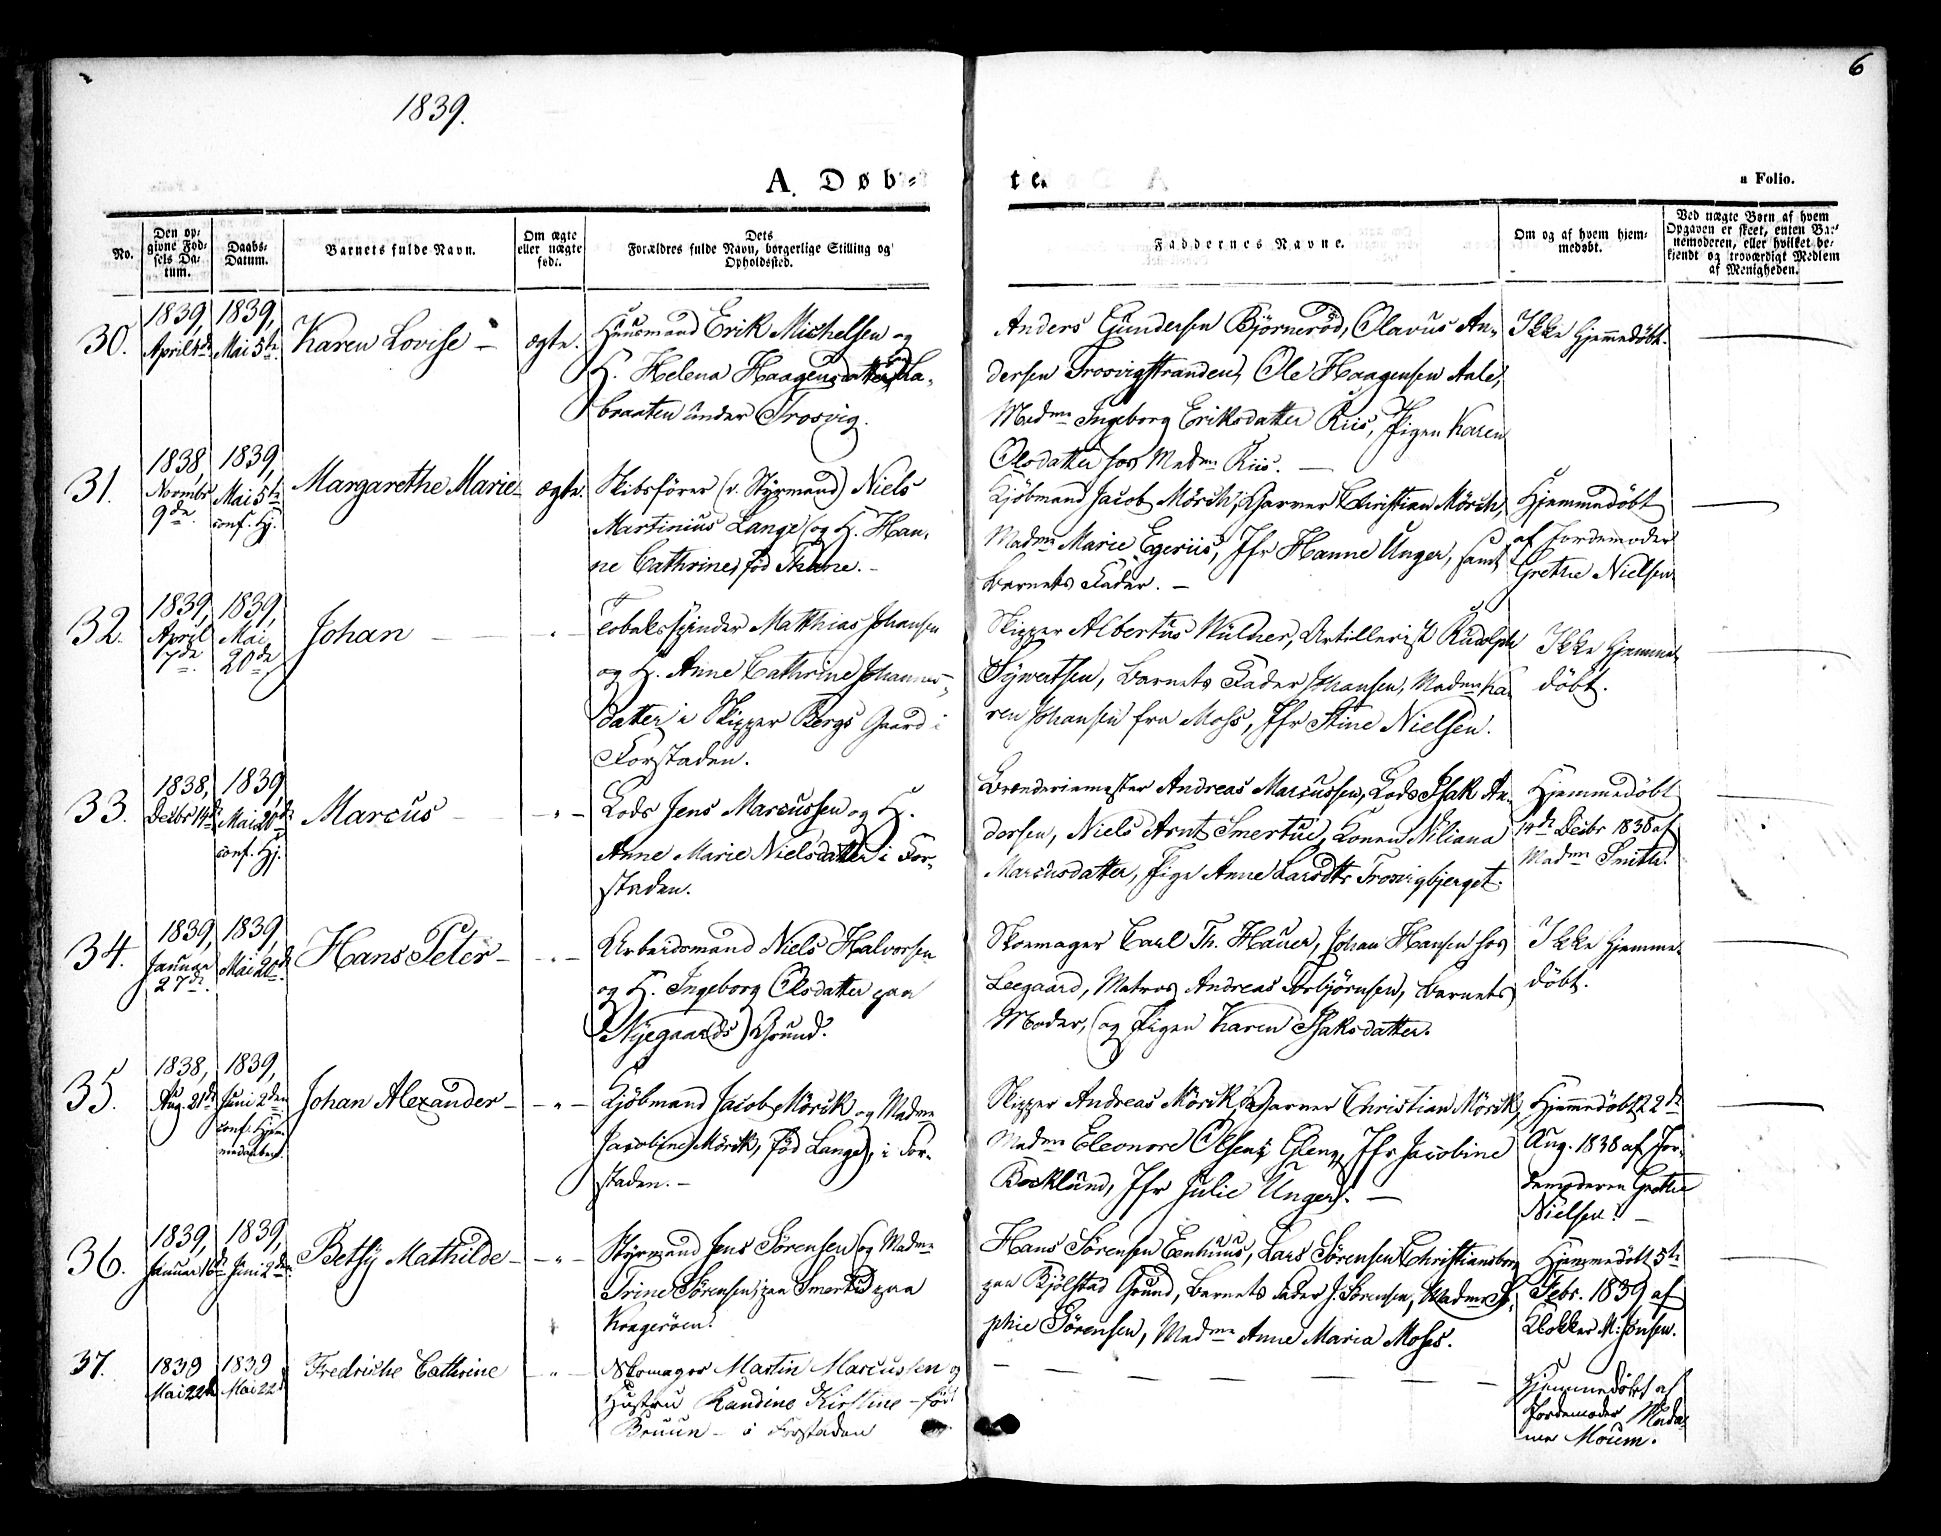 6
1839.
A. Døb-
te.
a Folio.
No.
Den op-
givne Fød-
sels Da-
tum.
Daabs-
Datum.
Barnets fulde Navn.
Om ægte
eller uægte
født.
Dets
Forældres fulde Navn, borgerlige Stilling og
Opholdssted.
Faddernes Navne.
Om og af hvem hjem-
medøbt.
Ved uægte Børn af hvem
Opgaven er skeet, enten Bar-
nemoderen, eller hvilket be-
kjendt og troværdigt Medlem
af Menigheden.
30.
1839,
April 4de
1839,
Mai 5te
Karen Lovise
ægte.
Huusmand Erik Michelsen og
H. Helena Haagensdatter
braaten under Trosvig.
Anders Gundersen Bjørnerød, Olavus An-
dersen Trosvigstranden, Ole Haagensen Aale,
Madme Ingeborg Eriksdatter Riis, Pigen Karen
Olsdatter hos Madme Riis.
Ikke hjemmedøbt.
31.
1838
Novmbr
9de
1839,
Mai 5te
conf. Hj.
Margarethe Marie
ægte.
Skibsfører (v. Styrmand) Niels
Martinius Lange og H. Han-
ne Cathrine, fød Thane.
Kjøbmand Jacob Mörch, Garver Christian Mörch,
Madme Marie Egeriis, Jfr Hanne Unger, samt
Barnets Fader.
Hjemmedöbt
af Jordemoder
Grethe Nielsen
32.
1839,
April
7de
1839,
Mai
20de
Johan
"
Tobaksspinder Matthias Johansen
og H. Anne Cathrine Johannes-
datter i Skipper Bergs Gaard i
Forstaden.
Skipper Albertus Wulner, Artillerist Rudolph
Sywertsen, Barnets Fader Johansen, Madme Ka-
ren Johansen fra Moss, Jfr Stine Nielsen.
Ikke hjemme-
döbt.
33.
1838,
Decbr 14de
1839,
Mai 20de
conf. Hj.
Marcus
"
Lods Jens Marcussen og H.
Anne Marie Nielsdatter i For-
staden.
Brænderiemester Andreas Marcussen, Lods Isak An-
dersen, Niels Arnt Smertu, Konen Niliana
Marcusdatter, Pige Anne Larsdtr Trosvigbjerget.
Hjemmedöbt
14de Decbr 1838 af
Madme Smith.
34.
1839,
Januar
27de
1839,
Mai 20de
Hans Peter
"
Arbeidsmand Niels Halvorsen
og H. Ingeborg Olsdatter paa
Nyegaards Grund.
Skomager Carl Th. Hauer, Johan Hansen hos
Leegaard, Matros Andreas Torbjörnsen, Barnets
Moder, og Pigen Karen Isaksdatter.
Ikke hjemme-
döbt.
35.
1838,
Aug. 21de
1839,
Juni 2den
conf. Hjem-
medaaben.
Johan Alexander
"
Kjöbmand Jacob Mörck og Madme
Jacobine Mörck, fød Lange, i For-
staden.
Skipper Andreas Mörck, Garver Christian Mörck,
Madme Eleonore Olsen, Glenge, Jfr Jacobine
Bocklund, Jfr Julie Unger.
Hjemmedöbt 22de
Aug. 1838 af Jor-
demoderen Grethe
Nielsen.
36.
1839,
Januar 16de
1839,
Juni 2den
Betsy Mathilde
"
Styrmand Jens Sörensen og Madme
Trine Sörensen, paa Smertu paa
Kragerøen.
Hans Sörensen Eenhuus, Lars Sörensen Christiansborg
paa Kjölstad Grund, Barnets Fader J. Sörensen, Madme So-
phie Sörensen, Madme Anne Maria Moses.
Hjemmedöbt 5te
Febr. 1839 af
Klokker M. Jensen.
37.
1839
Mai 22de
1839
Mai 22de
Fredriche Cathrine
"
Skomager Martin Marcussen og
Hustru Randine Kirstine – fød
Bruun – i Forstaden
Hjemmedöbt af
Jordemoder Mada-
me Moum.